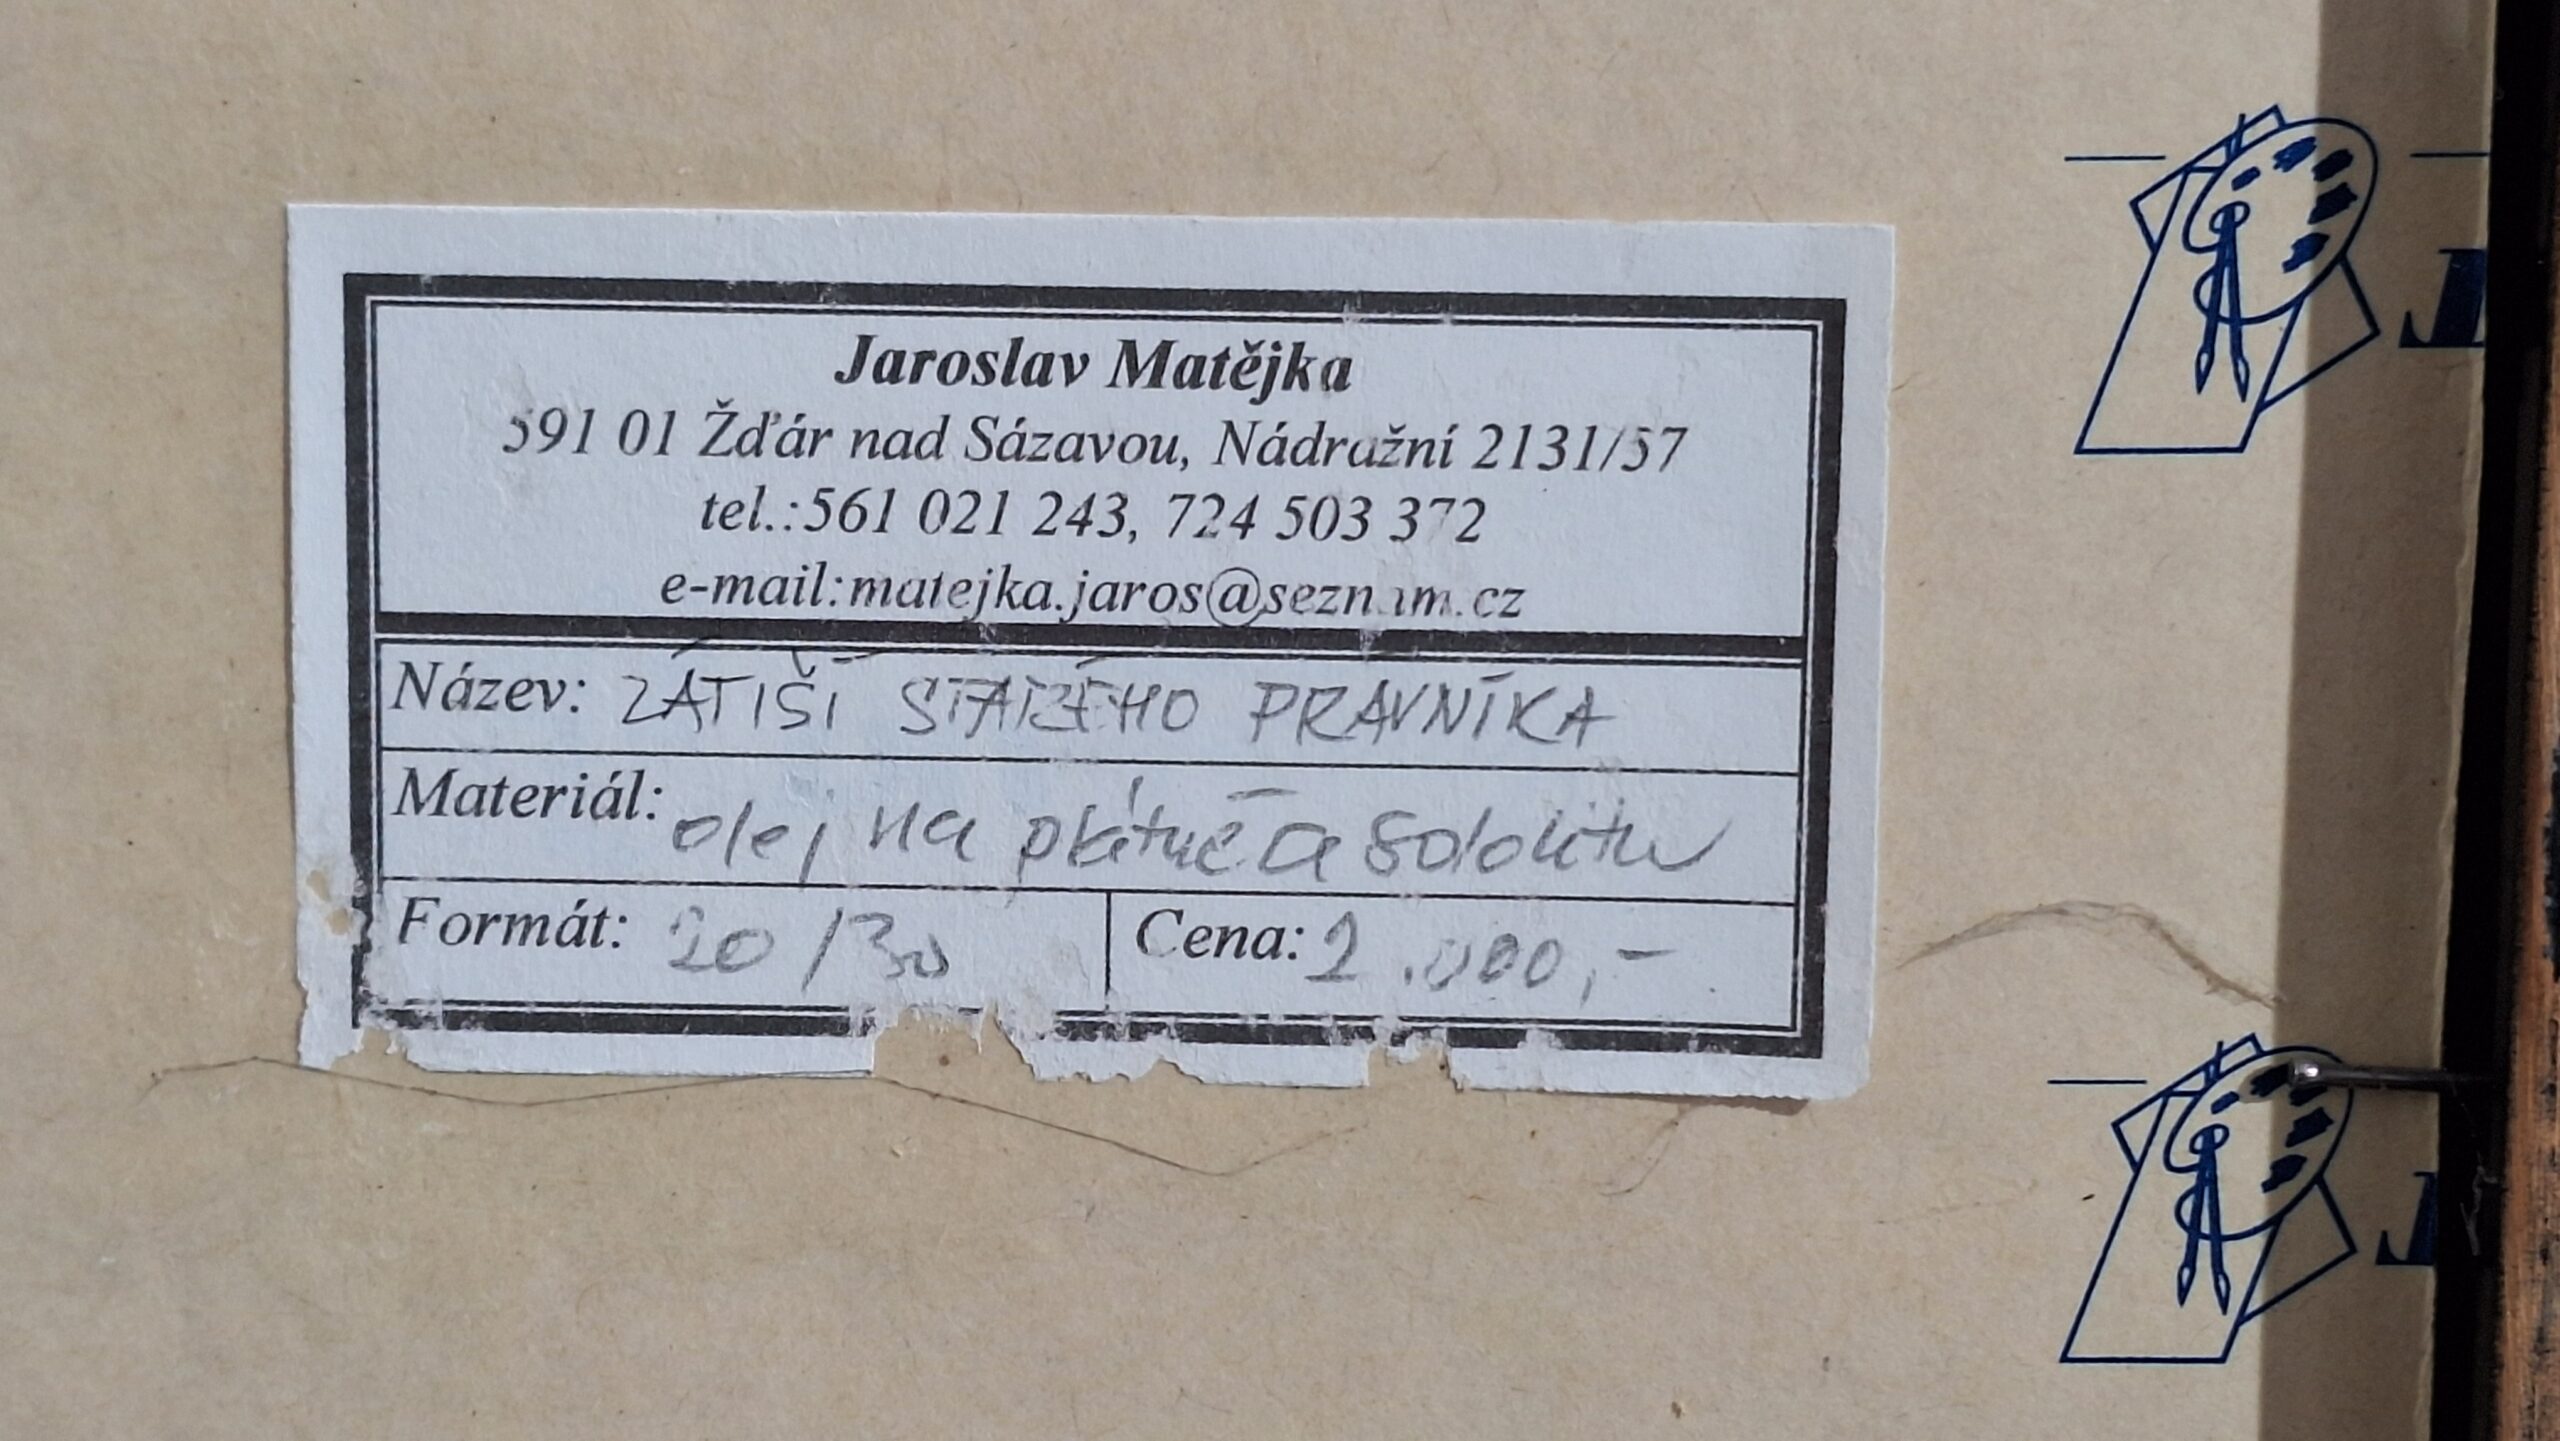 Jaroslav Matějka
591 01 Žďár nad Sázavou, Nádražní 2131/57
tel.:561 021 243, 724 503 372
e-mail:matejka.jaros@seznam.cz
Název: ZÁTIŠÍ STARÉHO PRÁVNÍKA
Materiál: olej na plátně a sololitu
Formát: 20/30 Cena: 2.000,-